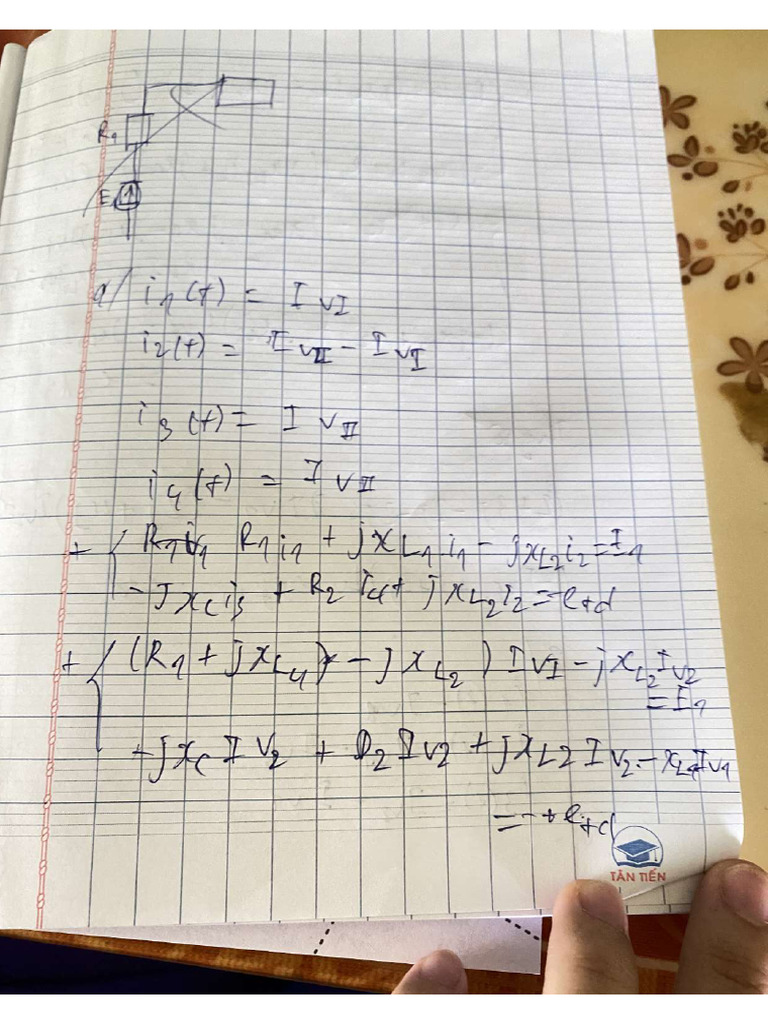 R1
E
a/ i1(t) = I vI
i2(t) = I vII - I vI
i3(t) = I vII
i4(t) = I vII
+ { R1i1 R1i1 + jxL1 i1 - jxL2 i2 = E1
- jxc i3 + R2 i4 + jxL2 i2 = -e+d
+ { (R1 + jxL1) - jxL2) I vI - jxL2 I v2
= E1
+ jxc I v2 + R2 I v2 + jxL2 I v2 - xL1 I v1
= - + e+d
TÂN TIẾN